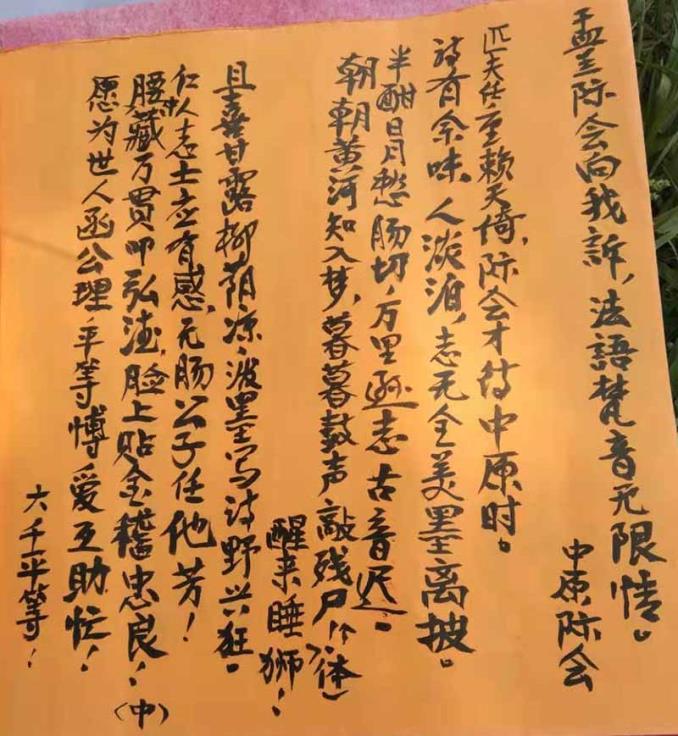 孟兰际会向我訴，法語梵音无限情。
中原际会
匹夫任重赖天倚，际会才待中原时。
诗有余味，人淡泊，志无全美墨离披。
半酣日月愁肠切，万里逊志古音迟。
朝朝黄河知入梦，暮暮鼓声敲残尸（体）
醒来睡狮！
且喜甘露柳荫凉，泼墨写诗野兴狂。
仁人志士应有感，无肠公子任他芳！
腰藏万贯叩弘法，脸上贴金稽忠良！（中）
愿为世人函公理，平等博爱互助忙！
六千平等！